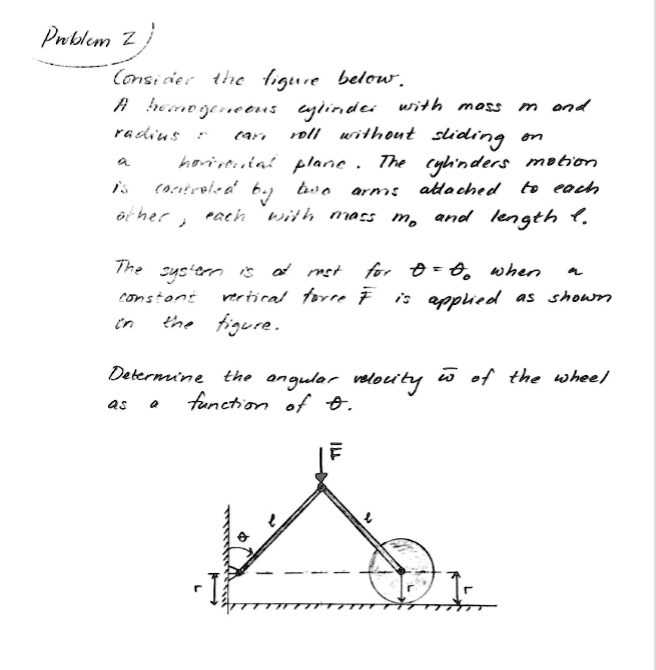 Problem 2
Consider the figure below.
A homogeneous cylinder with mass m and
radius r can roll without sliding on
a horizontal plane. The cylinders motion
is controled by two arms attached to each
other, each with mass m₀ and length l.
The system is at rest for θ = θ₀ when a
constant vertical force F̄ is applied as shown
in the figure.
Determine the angular velocity ω̄ of the wheel
as a function of θ.
F̄
l l
θ
r r r